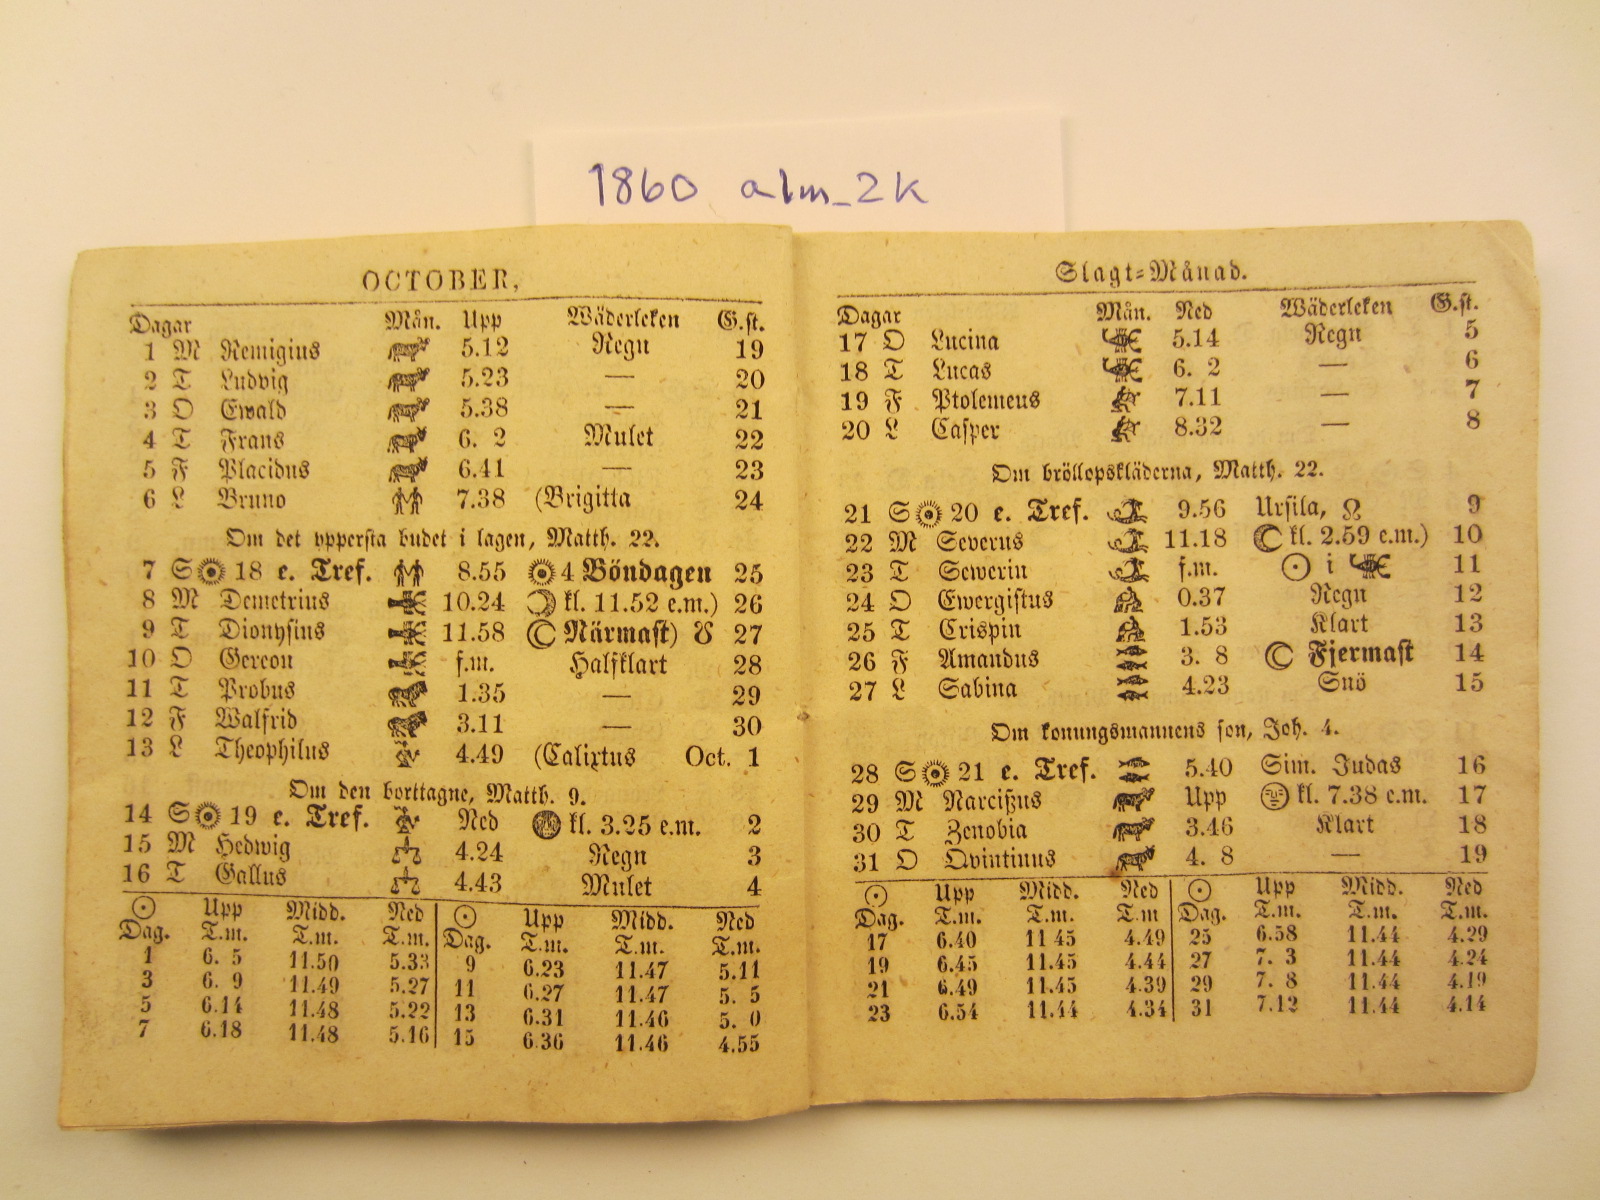 1860 alm_2k
OCTOBER,
Dagar Mån. Upp Wäderleken G.st.
1 M Remigius 5.12 Regn 19
2 T Ludvig 5.23 — 20
3 O Ewald 5.38 — 21
4 T Frans 6. 2 Mulet 22
5 F Placidus 6.41 — 23
6 L Bruno 7.38 (Brigitta 24
Om det yppersta budet i lagen, Matth. 22.
7 S 18 e. Tref. 8.55 4 Böndagen 25
8 M Demetrius 10.24 kl. 11.52 e.m.) 26
9 T Dionysius 11.58 Närmast) ☋ 27
10 O Gereon f.m. Halfklart 28
11 T Probus 1.35 — 29
12 F Walfrid 3.11 — 30
13 L Theophilus 4.49 (Calixtus Oct. 1
Om den borttagne, Matth. 9.
14 S 19 e. Tref. Ned kl. 3.25 e.m. 2
15 M Hedwig 4.24 Regn 3
16 T Gallus 4.43 Mulet 4
☉ Upp Midd. Ned ☉ Upp Midd. Ned
Dag. T.m. T.m. T.m. Dag. T.m. T.m. T.m.
1 6. 5 11.50 5.33 9 6.23 11.47 5.11
3 6. 9 11.49 5.27 11 6.27 11.47 5. 5
5 6.14 11.48 5.22 13 6.31 11.46 5. 0
7 6.18 11.48 5.16 15 6.36 11.46 4.55
Slagt-Månad.
Dagar Mån. Ned Wäderleken G.st.
17 O Lucina 5.14 Regn 5
18 T Lucas 6. 2 — 6
19 F Ptolemeus 7.11 — 7
20 L Casper 8.32 — 8
Om bröllopskläderna, Matth. 22.
21 S 20 e. Tref. 9.56 Ursila, ☊ 9
22 M Severus 11.18 kl. 2.59 e.m.) 10
23 T Sewerin f.m. ☉ i 11
24 O Ewergistus 0.37 Regn 12
25 T Crispin 1.53 Klart 13
26 F Amandus 3. 8 Fjermast 14
27 L Sabina 4.23 Snö 15
Om konungsmannens son, Joh. 4.
28 S 21 e. Tref. 5.40 Sim. Judas 16
29 M Narcißus Upp kl. 7.38 e.m. 17
30 T Zenobia 3.46 Klart 18
31 O Qvintinus 4. 8 — 19
☉ Upp Midd. Ned ☉ Upp Midd. Ned
Dag. T.m. T.m. T.m Dag. T.m. T.m. T.m.
17 6.40 11 45 4.49 25 6.58 11.44 4.29
19 6.45 11.45 4.44 27 7. 3 11.44 4.24
21 6.49 11.45 4.39 29 7. 8 11.44 4.19
23 6.54 11.44 4.34 31 7.12 11.44 4.14